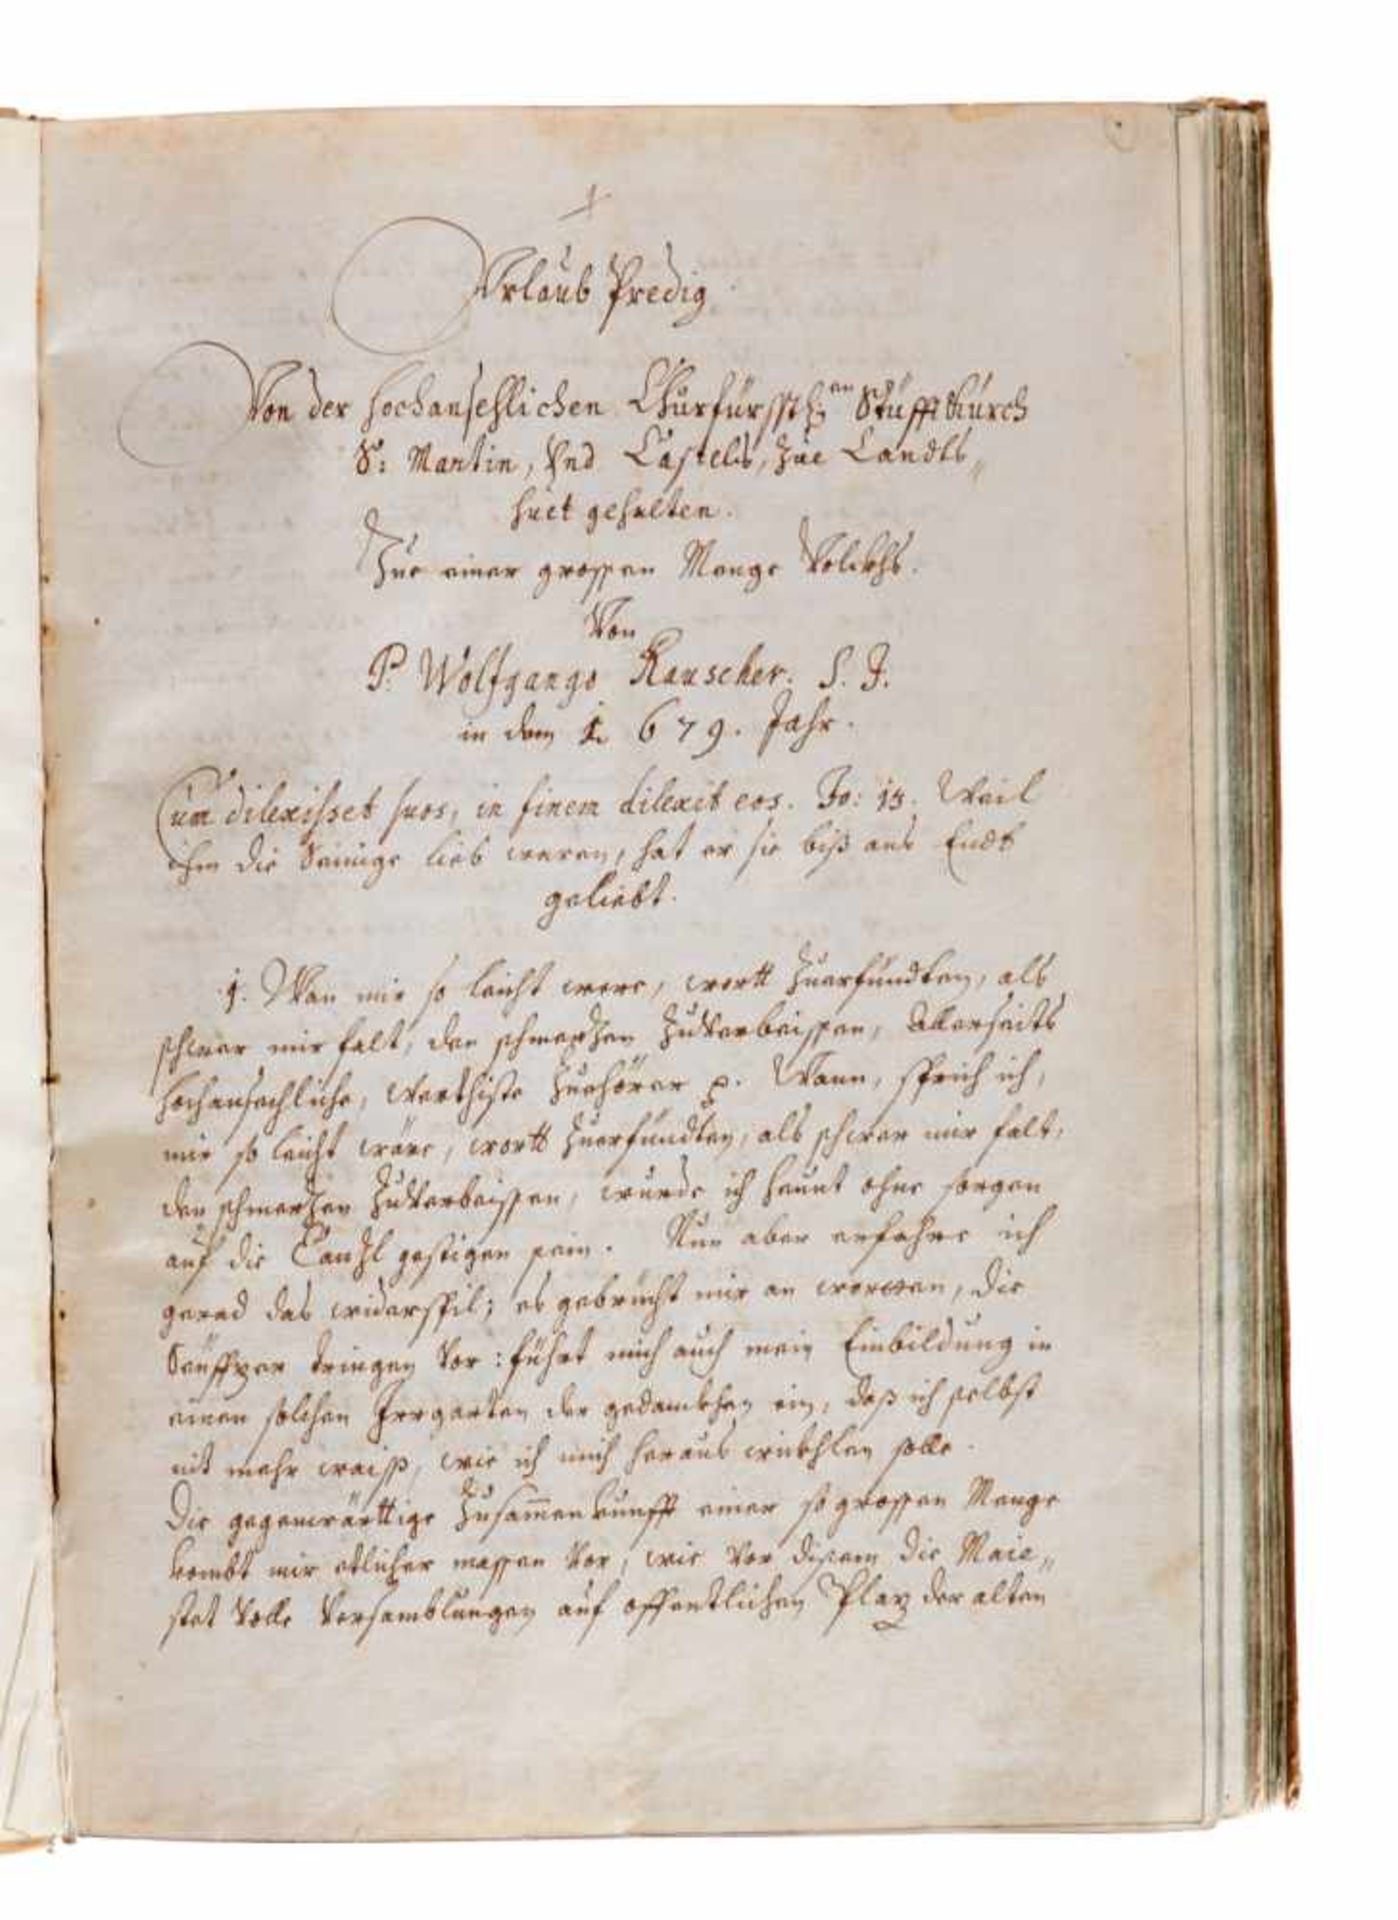 Vrlaub Predig
Von der hochansehlichen Churfürsstl:en Stüfftkürch
S: Martin, Vnd Castels, zue Landts„
huet gehalten.
Zue einer grossen Menge Volckhs.
Von
P. Wolfgango Rauscher. S. J.
in dem 1679. Jahr.
Cum dilexisset suos, in finem dilexit eos. Jo: 13. Weil
ihm die Seinige lieb waren, hat er sie biß ans Endt
geliebt.
1. Wan mir so leicht were, wortt zuerfündten, als
schwer mir falt, den schmerzen zuVerbeissen, Allerseits
hochansechliche, Werthiste Zuehörer. Wann, sprich ich,
mir so leicht wäre, wortt zuerfündten, als schwer mir falt,
den schmerzen zuVerbeissen, wurde ich heunt ohne sorgen
auf die Canzl gestigen sein. Nun aber erfahre ich
gerad das widerspil; es gebrücht mir an worten, die
Seüffzer tringen Vor: führt mich auch mein Einbildung in
einen solchen Irrgarten der gedanckhen ein, daß ich selbst
nit mehr waiß, wie ich mich heraus wickhlen solle.
Die gegenwärttige Zusam̄enkunfft einer so grossen Menge
kombt mir etlicher massen Vor, wie Vor disem die Maie„
stet Volle Versamblungen auf offentlichen Plaz der alten